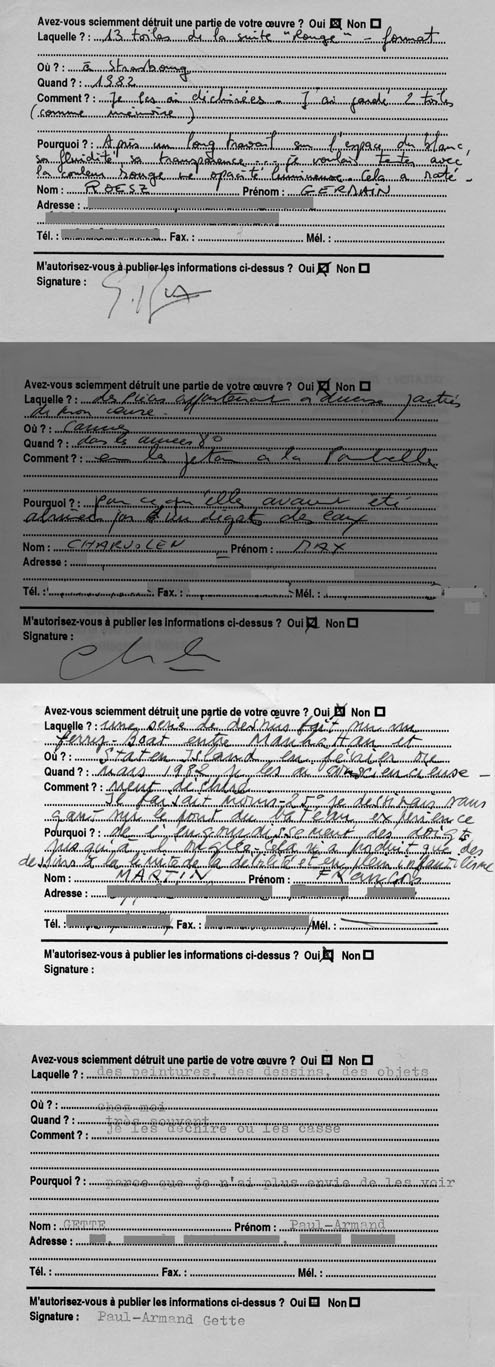 Avez-vous sciemment détruit une partie de votre œuvre ? Oui Non
Laquelle ? : 13 toiles de la suite "Rouge" - format
Où ? : à Strasbourg
Quand ? : 1982
Comment ? : Je les ai déchirées - J'ai gardé 2 toiles
(comme mémoire)
Pourquoi ? : Après un long travail sur l'espace du blanc,
sa fluidité sa transparence... je voulais tenter avec
la couleur Rouge une opacité lumineuse. Cela a raté.
Nom : ROESZ Prénom : GERMAIN
Adresse :
Tél. : Fax. : Mél. :
M'autorisez-vous à publier les informations ci-dessus ? Oui Non
Signature :
Avez-vous sciemment détruit une partie de votre œuvre ? Oui Non
Laquelle ? : des pièces appartenant à diverses parties
de mon œuvre.
Où ? : Cannes
Quand ? : dans les années 80
Comment ? : en les jetant à la Poubelle
Pourquoi ? : par ce qu'elles avaient été
abimées par un dégats des eaux
Nom : CHARVOLEN Prénom : MAX
Adresse :
Tél. : Fax. : Mél. :
M'autorisez-vous à publier les informations ci-dessus ? Oui Non
Signature :
Avez-vous sciemment détruit une partie de votre œuvre ? Oui Non
Laquelle ? : une série de dessins fait sur un
ferry-Boat entre Manhattan et
Où ? : Staten Island en février ou
Quand ? : mars 1982 je les ai consciencieuse-
Comment ? : ment déchiré
Il faisait moins 25° je dessinais sans
gant sur le pont du bateau, expérience
Pourquoi ? : de l'engourdissement des doigts
jusqu'à l'onglée. Cela n'a produit que des
dessins à la limite de la débilité et en plein infantilisme
Nom : MARTIN Prénom : FRANÇOIS
Adresse :
Tél. : Fax. : Mél. :
M'autorisez-vous à publier les informations ci-dessus ? Oui Non
Signature :
Avez-vous sciemment détruit une partie de votre œuvre ? Oui Non
Laquelle ? : des peintures, des dessins, des objets
Où ? : chez moi
Quand ? : très souvent
Comment ? : je les déchire ou les casse
Pourquoi ? : parce que je n'ai plus envie de les voir
Nom : GETTE Prénom : Paul-Armand
Adresse :
Tél. : Fax. : Mél. :
M'autorisez-vous à publier les informations ci-dessus ? Oui Non
Signature : Paul-Armand Gette